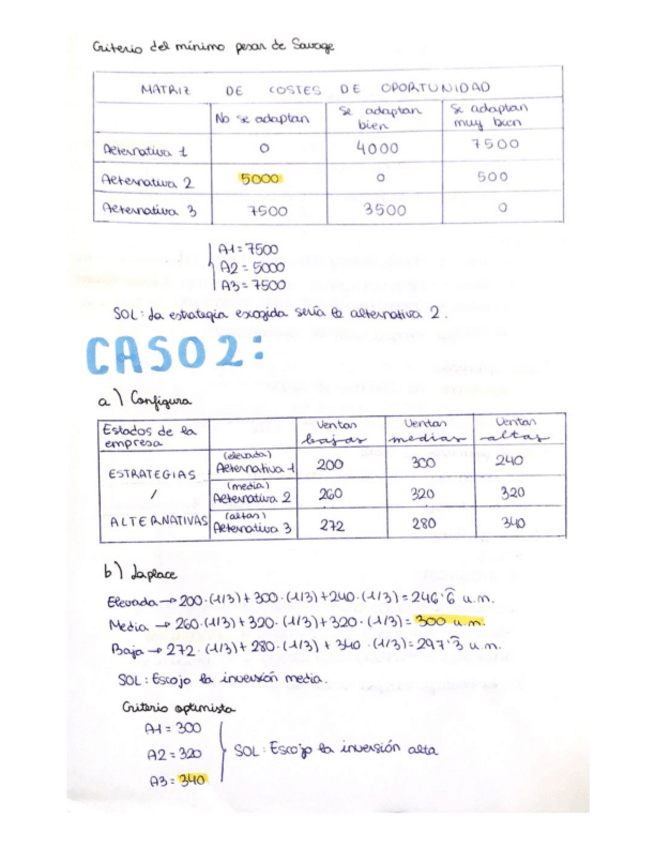 Criterio del mínimo pesar de Savage
MATRIZ DE COSTES DE OPORTUNIDAD
No se adaptan Se adaptan bien Se adaptan muy bien
Alternativa 1 0 4000 7500
Alternativa 2 5000 0 500
Alternativa 3 7500 3500 0
A1 = 7500
A2 = 5000
A3 = 7500
SOL: La estrategia escogida sería la alternativa 2.
CASO 2:
a) Configura
Estados de la empresa Ventas bajas Ventas medias Ventas altas
ESTRATEGIAS / ALTERNATIVAS
(elevada) Alternativa 1 200 300 240
(media) Alternativa 2 260 320 320
(altas) Alternativa 3 272 280 340
b) Laplace
Elevada → 200·(1/3) + 300·(1/3) + 240·(1/3) = 246'6̂ u.m.
Media → 260·(1/3) + 320·(1/3) + 320·(1/3) = 300 u.m.
Baja → 272·(1/3) + 280·(1/3) + 340·(1/3) = 297'3̂ u.m.
SOL: Escojo la inversión media.
Criterio optimista
A1 = 300
A2 = 320 SOL: Escojo la inversión alta
A3 = 340